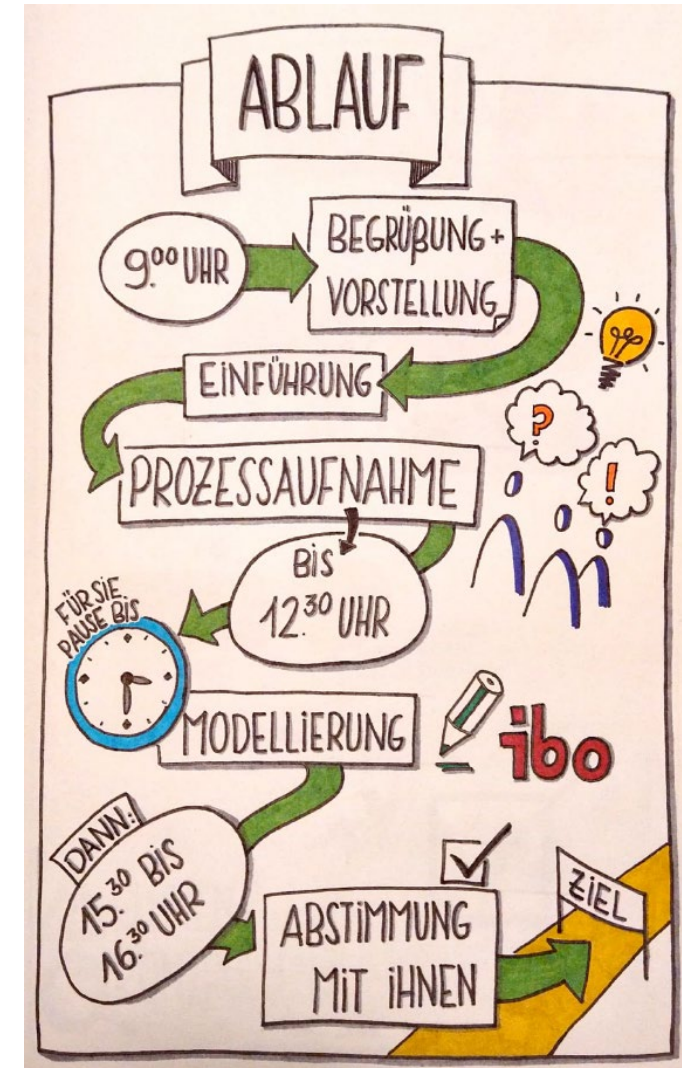 ABLAUF
9.00 UHR
BEGRÜßUNG +
VORSTELLUNG
EINFÜHRUNG
?
!
PROZESSAUFNAHME
BIS
12.30 UHR
FÜR SIE
PAUSE BIS
MODELLIERUNG
ibo
DANN:
15.30 BIS
16.30 UHR
ABSTIMMUNG
MIT IHNEN
ZIEL